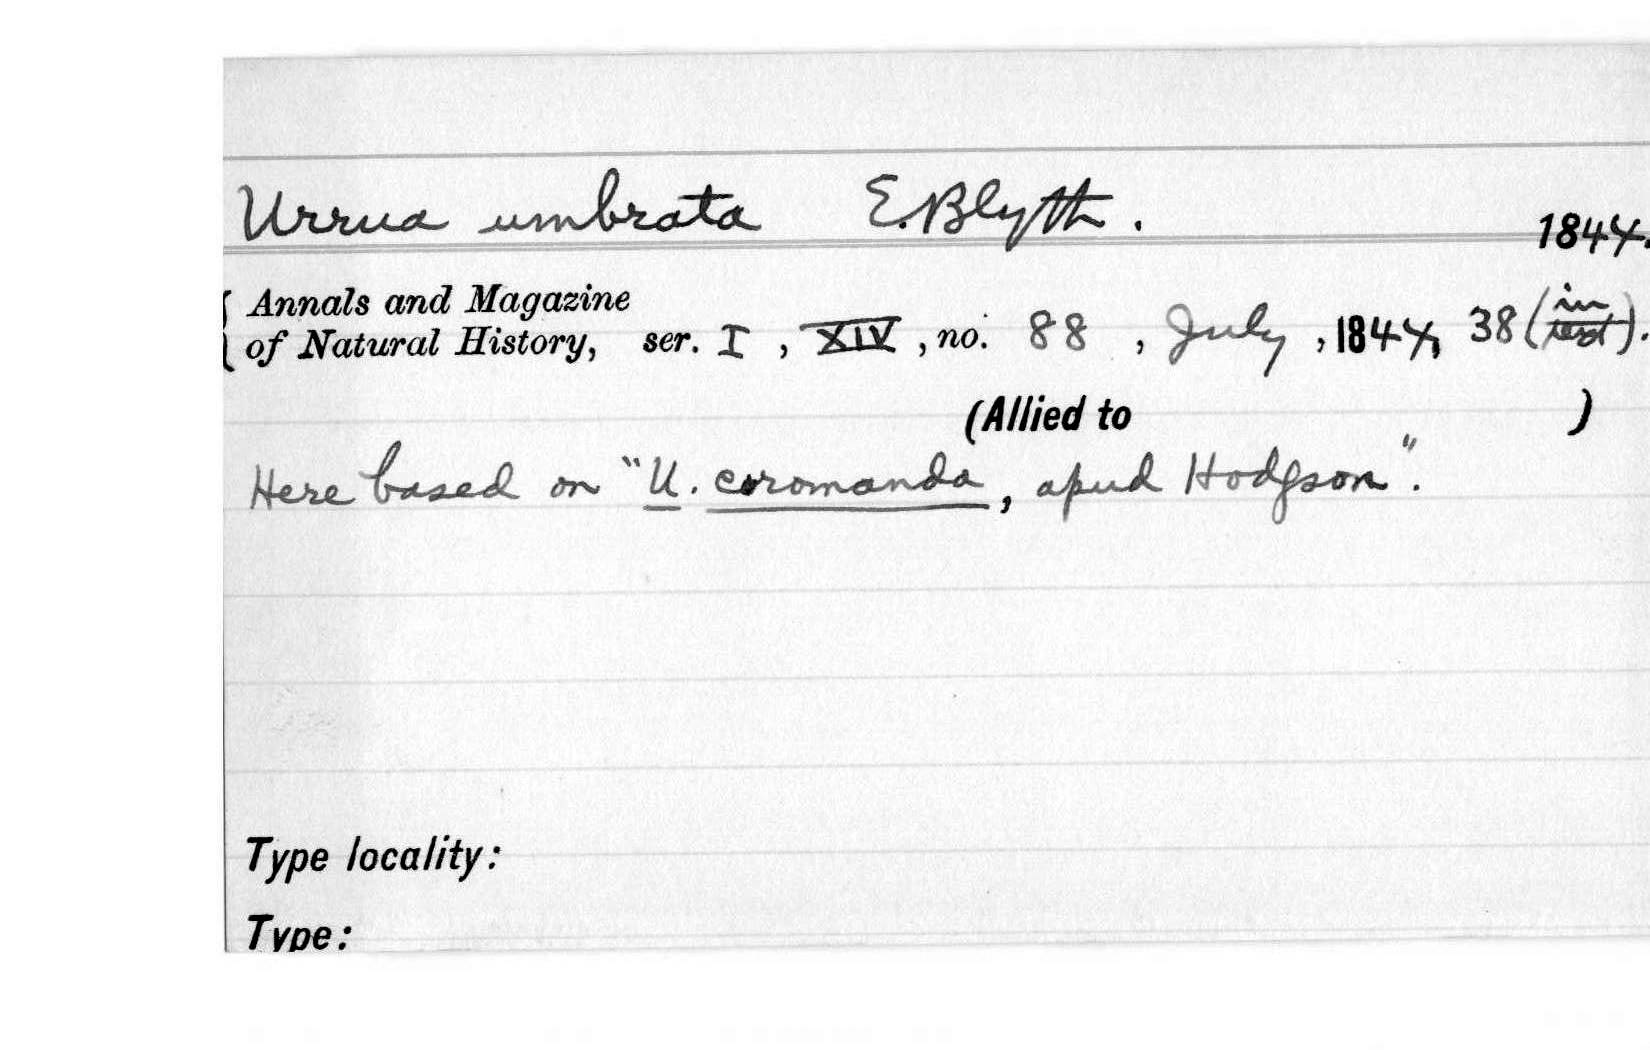 Urrua umbrata E. Blyth.
1844.
Annals and Magazine
of Natural History, ser. I, XIV, no. 88, July, 1844, 38 (in text).
(Allied to )
Here based on "U. coromanda, apud Hodgson".
Type locality:
Type: